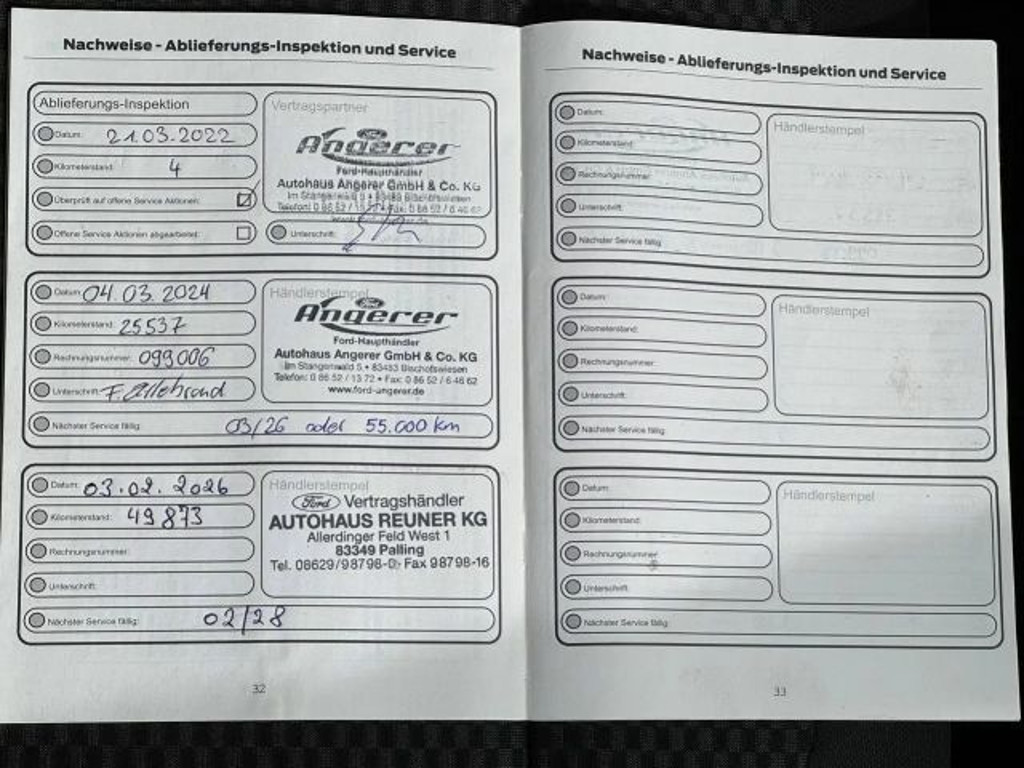 Nachweise - Ablieferungs-Inspektion und Service
Ablieferungs-Inspektion
Datum: 21.03.2022
Kilometerstand: 4
Überprüft auf offene Service Aktionen:
Offene Service Aktionen abgearbeitet:
Vertragspartner
Ford
Angerer
Ford-Haupthändler
Autohaus Angerer GmbH & Co. KG
Im Stangenwald 5 • 83483 Bischofswiesen
Telefon: 0 86 52 / 13 72 • Fax: 0 86 52 / 6 46 62
Unterschrift:
Datum: 04.03.2024
Kilometerstand: 25537
Rechnungsnummer: 099006
Unterschrift:
Nächster Service fällig: 03/26 oder 55.000 km
Händlerstempel
Ford
Angerer
Ford-Haupthändler
Autohaus Angerer GmbH & Co. KG
Im Stangenwald 5 • 83483 Bischofswiesen
Telefon: 0 86 52 / 13 72 • Fax: 0 86 52 / 6 46 62
www.ford-angerer.de
Datum: 03.02.2026
Kilometerstand: 49873
Rechnungsnummer:
Unterschrift:
Nächster Service fällig: 02/28
Händlerstempel
Ford Vertragshändler
AUTOHAUS REUNER KG
Allerdinger Feld West 1
83349 Palling
Tel. 08629/98798-0 Fax 98798-16
32
Nachweise - Ablieferungs-Inspektion und Service
Datum:
Kilometerstand:
Rechnungsnummer:
Unterschrift:
Nächster Service fällig:
Händlerstempel
Datum:
Kilometerstand:
Rechnungsnummer:
Unterschrift:
Nächster Service fällig:
Händlerstempel
Datum:
Kilometerstand:
Rechnungsnummer:
Unterschrift:
Nächster Service fällig:
Händlerstempel
33